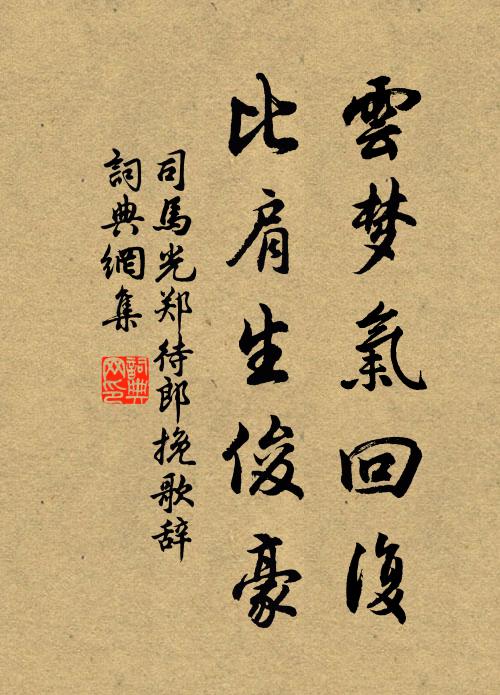 雲梦氣回復
比肩生俊豪
司馬光郑待郎挽歌辞
詞典網集
詞典网印